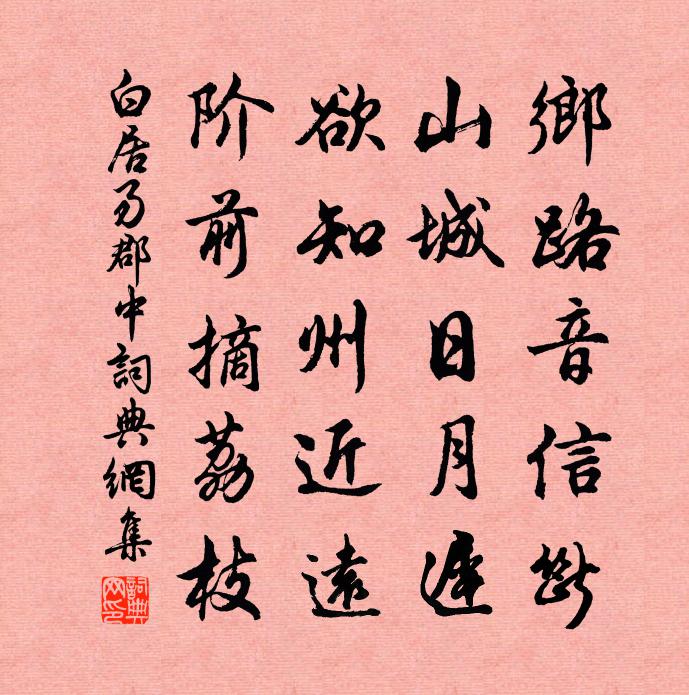 鄉路音信斷
山城日月遲
欲知州近遠
阶前摘荔枝
白居易郡中詞典網集
詞典網印